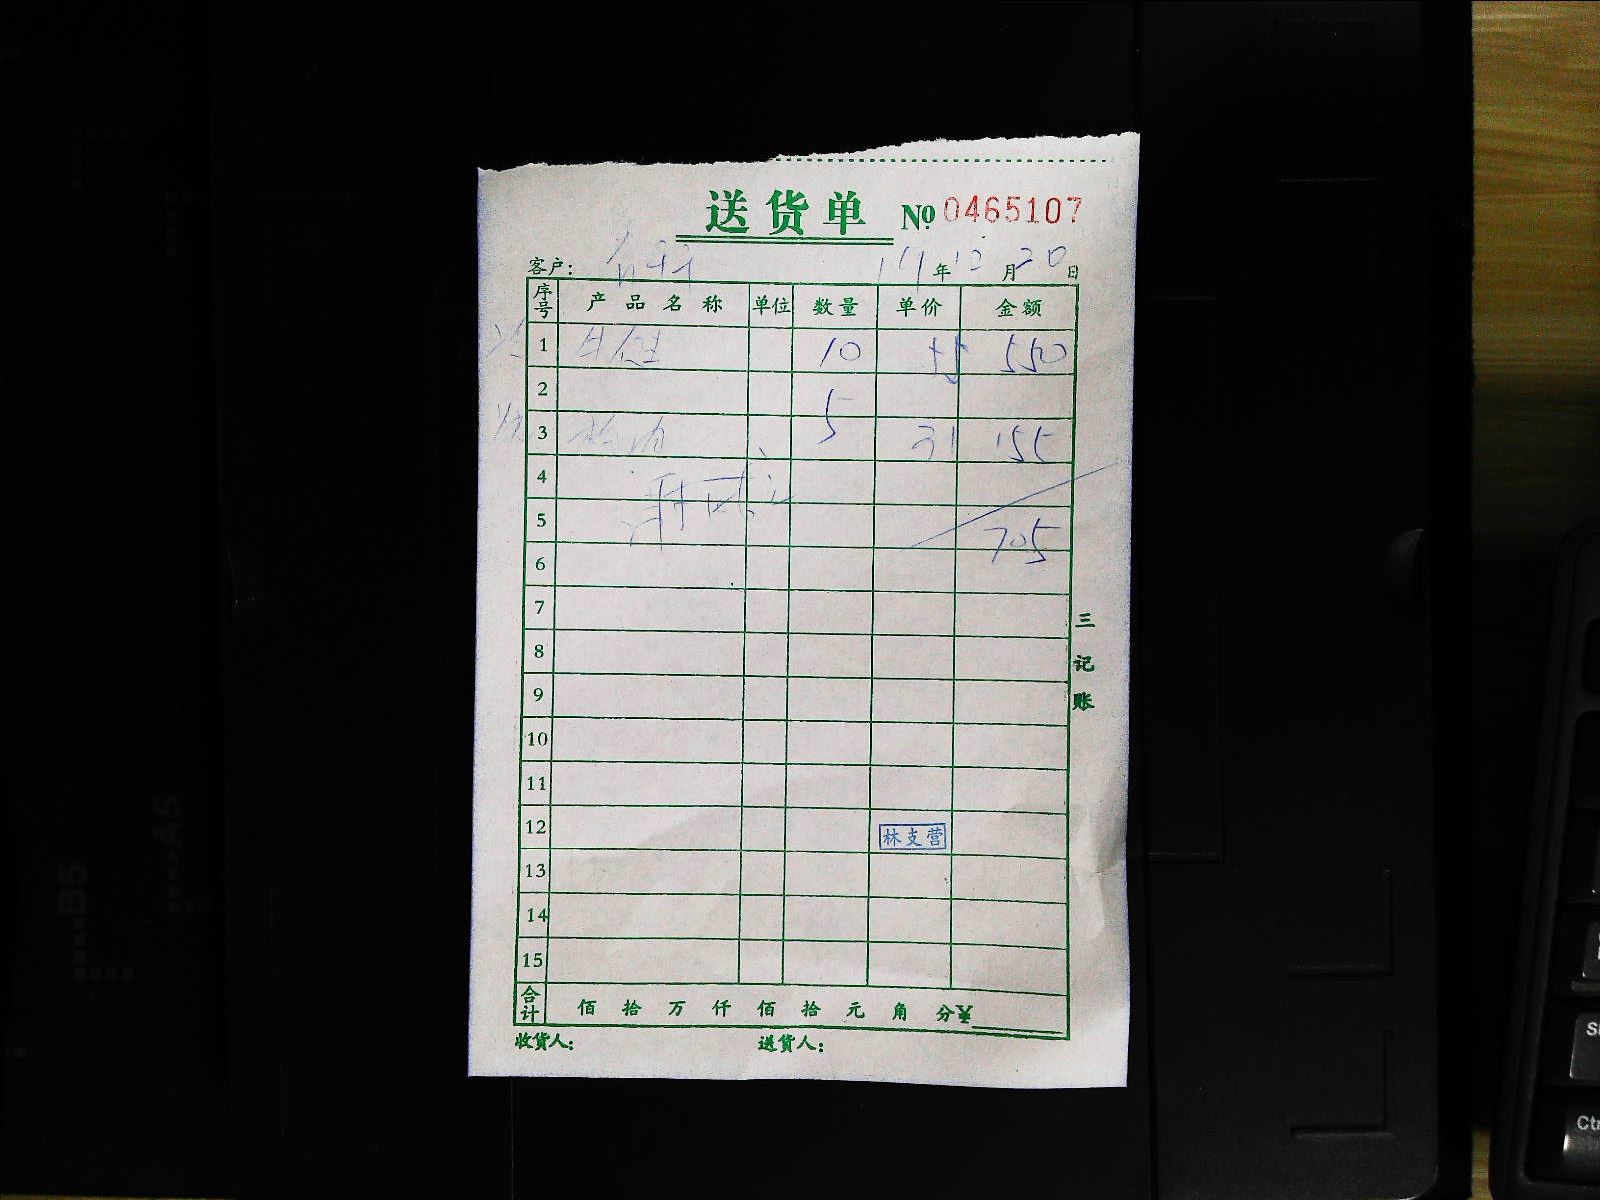 送货单 № 0465107
客户: 年12月20日
序号 产品名称 单位 数量 单价 金额
1 10 55 550
2
5
3 31 155
4
5
705
6
7
8
9
10
11
12 林支营
13
14
15
合计 佰 拾 万 仟 佰 拾 元 角 分¥
收货人: 送货人:
三记账
B5
A5
Ctr